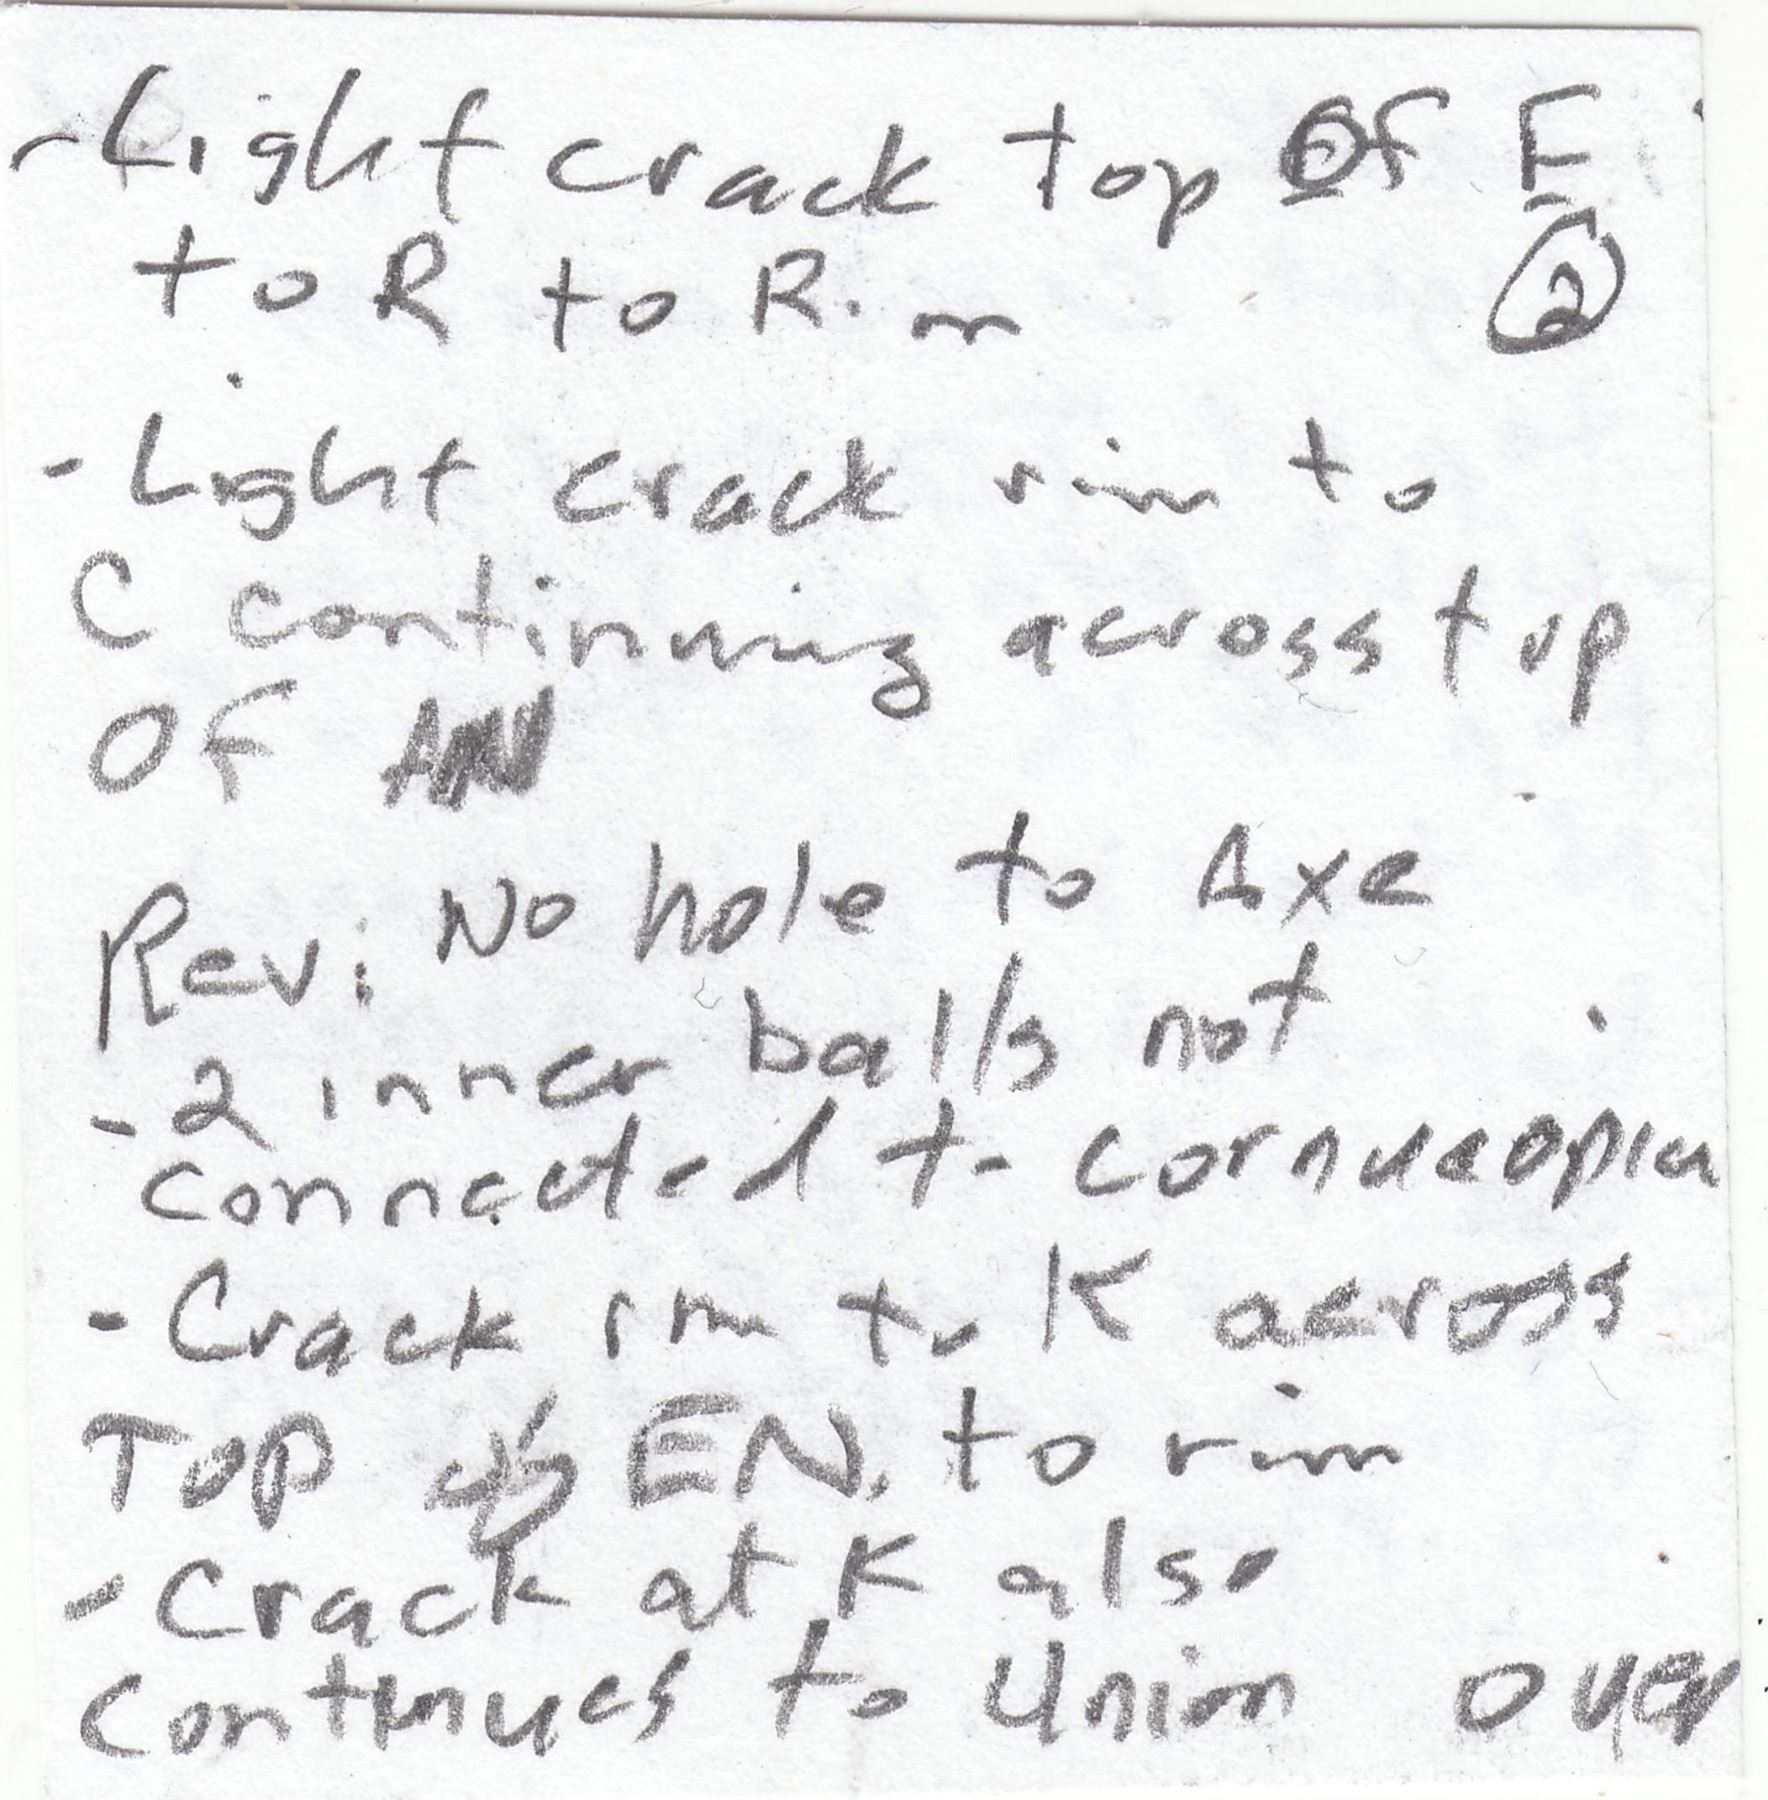 - Light crack top of E
to R to Rim
②
- Light crack rim to
C continuing across top
OF AN
Rev: No hole to Axe
- 2 inner balls not
connected to cornucopia
- Crack rim to K across
TOP of EN. to rim
- Crack at K also
continues to Union over